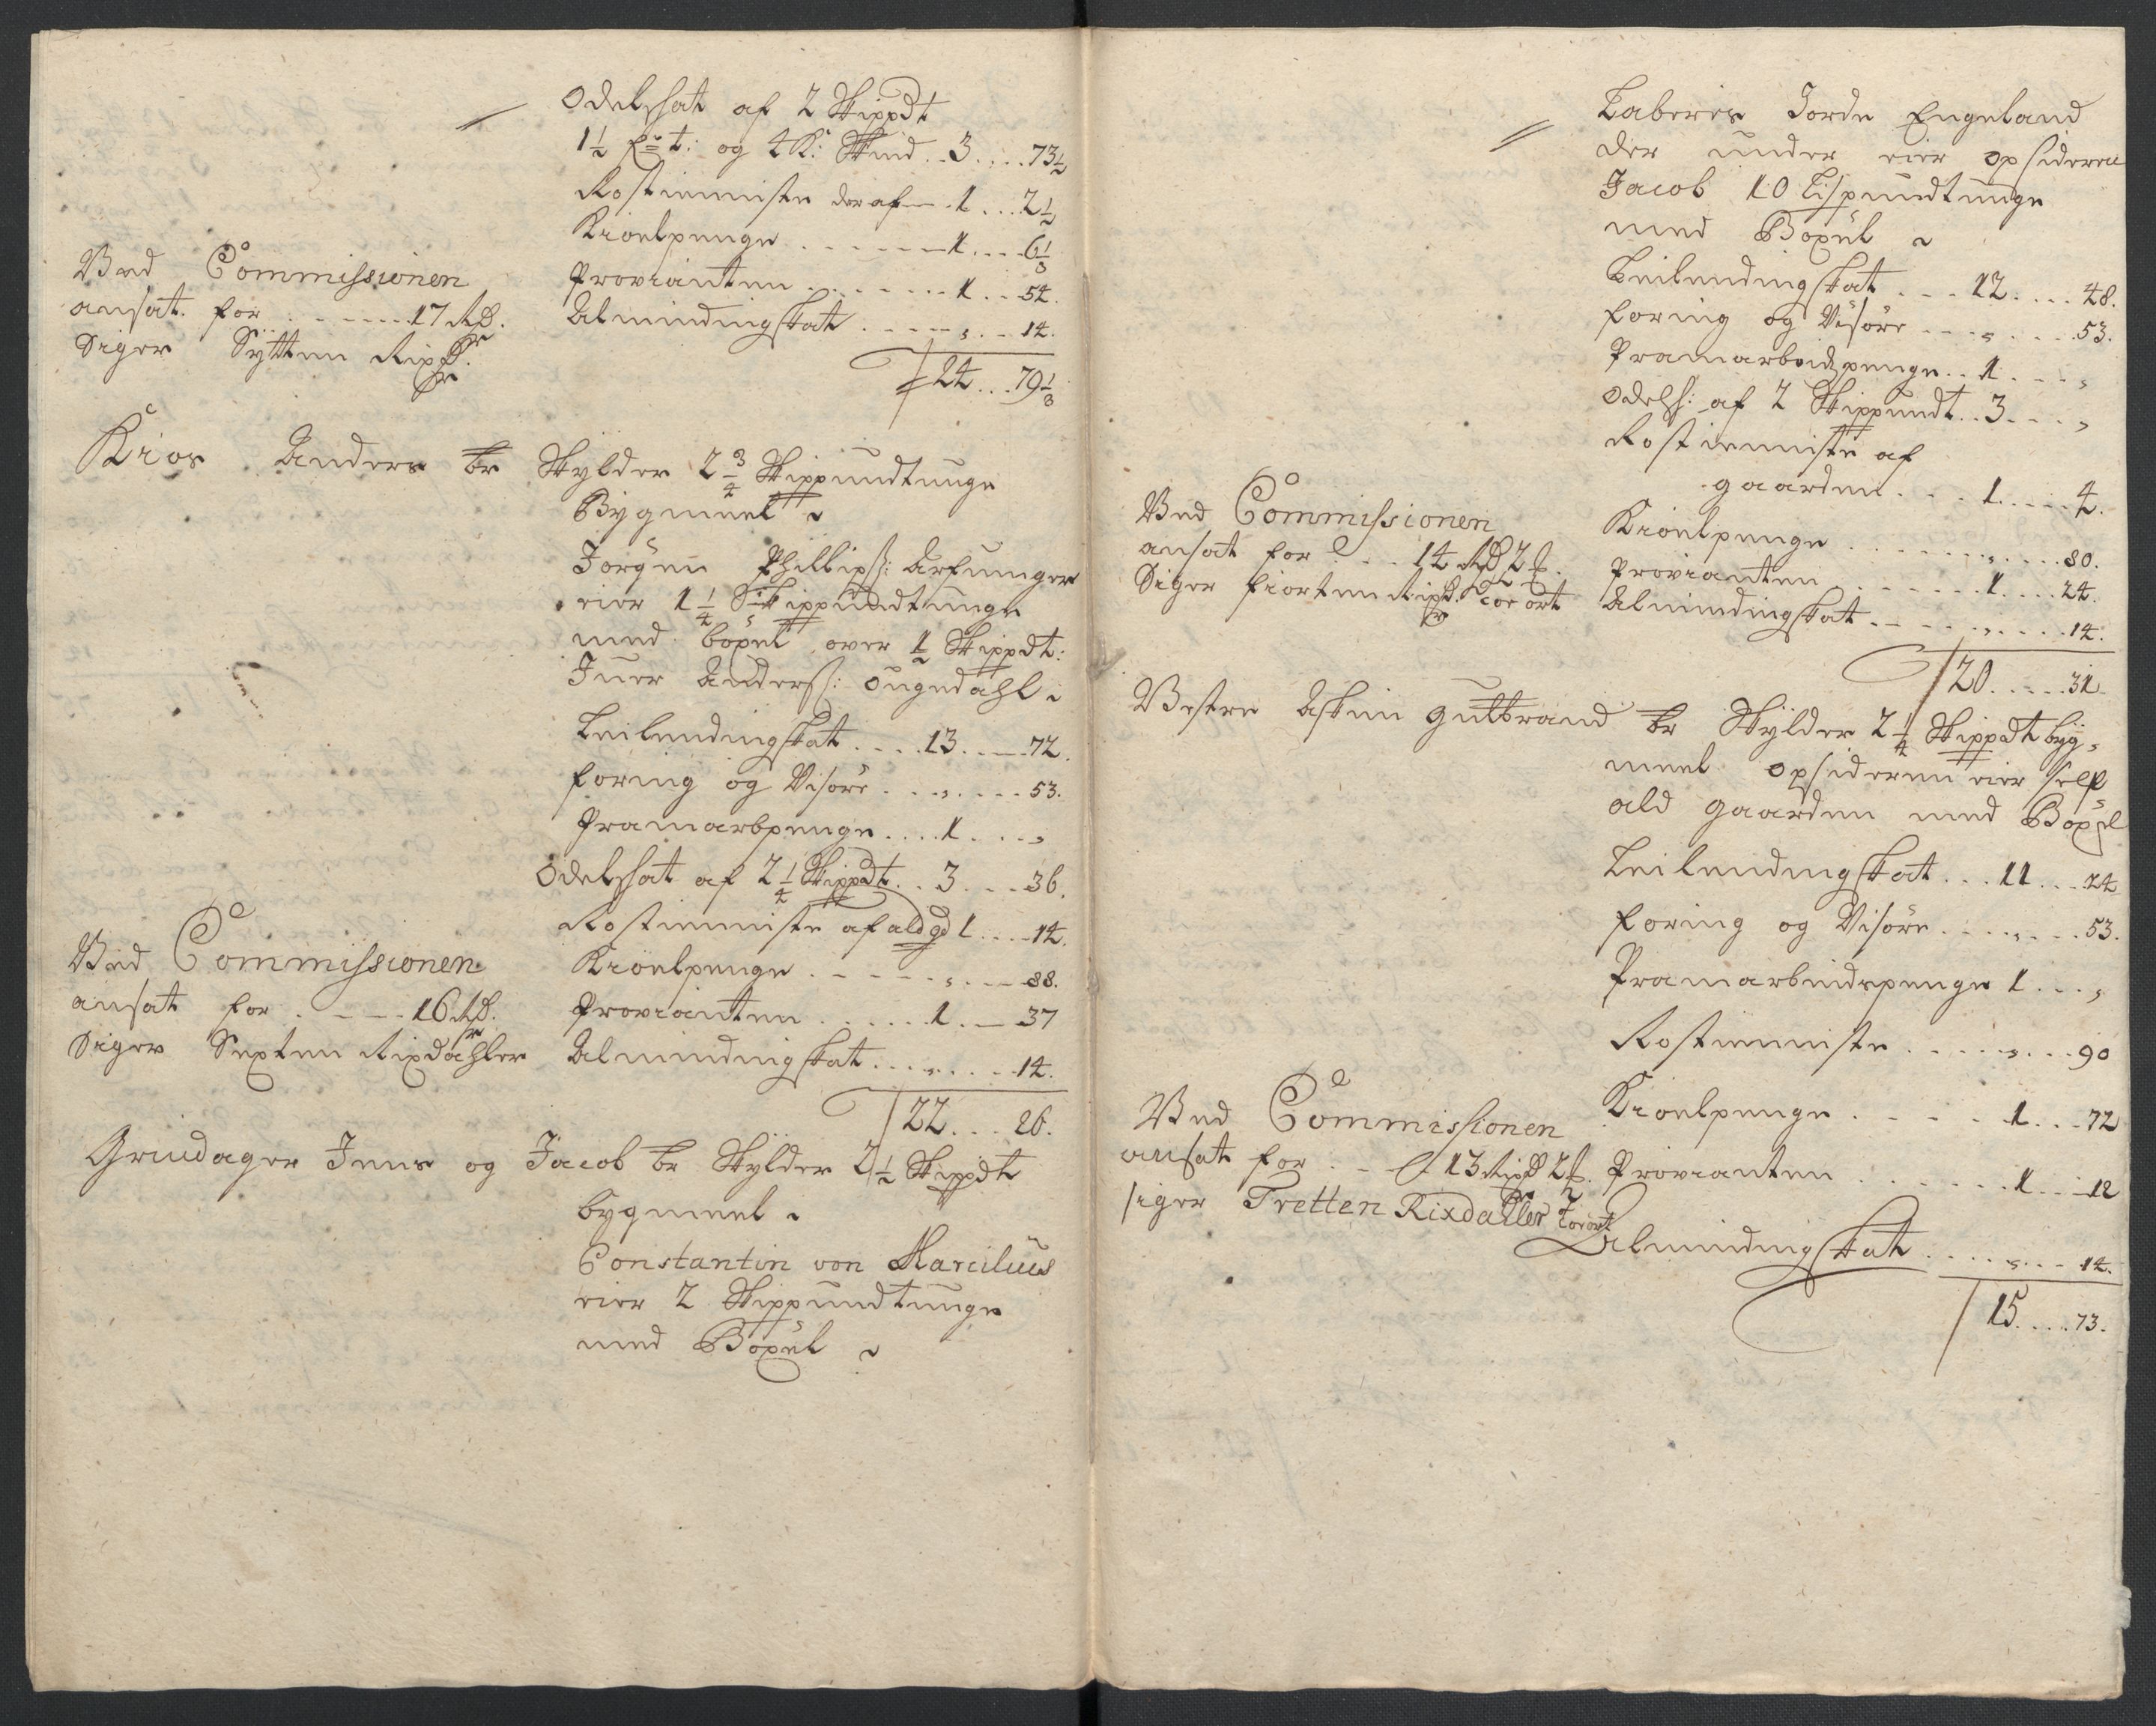 Odelskat af 2 Skippdt
1½ f: t: og 4 K: Skind .. 3 .... 73½
Rostienniste der af — 1 ... 2½
Kioelpenge . . . . . . — 1 .... 6⅓
Provianten . . . . . . . 1 .. 54.
Almindingskat . . . . „ . . 14.
24 ... 79⅓
Ved Commissionen
ansat for . . . . . . 17 Rd.
Siger Sytten Rixdr.
Kros Anders br Skylder 2¾ Skippundtunge
Bygmeel
Jorgen Phillips: Arfuinger
eier 1¼ Skippundtunge
med boxel over ½ Skippdt:
Juer Anderss: Ougedahl
Leilendingskat . . . . 13 . . — 72.
foring og Visøre . . . „ . . . . 53.
Pramarbpenge . . . . 1 . . . „
Odelskat af 2¼ Skippdt . . 3 . . . 36.
Rostienniste af ald gd 1 . . . 14.
Kioelpenge . . . . . „ . . — 88.
Provianten . . . . . . 1 . — 37
Almindingskat . . . „ . . . . 14.
22 . . . 26.
Ved Commissionen
ansat for . . . . 16 Rd.
Siger Sexten Rixdahler
Grindager Jens og Jacob br Skylder 2½ Skippdt
bygmeel
Constantin von Marcilius
eier 2 Skippundtunge
med Boxel
Taberes Jorde Engeland
der under eier opsideren
Jacob 10 Lispundtunge
med Boxel
Leilendingskat . . . 12 . . . . 48.
foring og Visøre . . . „ . . . . 53.
Pramarbeidspenge . . 1 . . . „
Odelsk: af 2 Skippundt . . 3 . . . „
Rostienniste af
gaarden . . . 1 . . . . 4.
Kioelpenge . . . . . . . „ . . . . 80.
Provianten . . . . . . . 1 . . . . 24.
Almindingskat . . . . . „ . . . . 14.
20 . . . . . 31
Ved Commissionen
ansat for . . . 14 Rd 2 ß.
Siger fiorten Rixdr. toe ort
Vestre Askim Gulbrand br Skylder 2¼ Skippdt byg„
meel opsideren eier self
ald gaarden med Boxel
Leilendingskat . . . 11 . . . 24
foring og Visøre . . . . „ . . . 53.
Pramarbeidspenge 1 . . . „
Rostienniste . . . . . „ . . . 90
Kioelpenge . . . . . 1 . . . 72
Provianten . . . . . . 1 . . . 12
Almindingskat . . . . . „ . . . 14.
15 . . . . 73.
Ved Commissionen
ansat for . . . 13 Rixd 2 ß.
siger Tretten Rixdaller toe ort